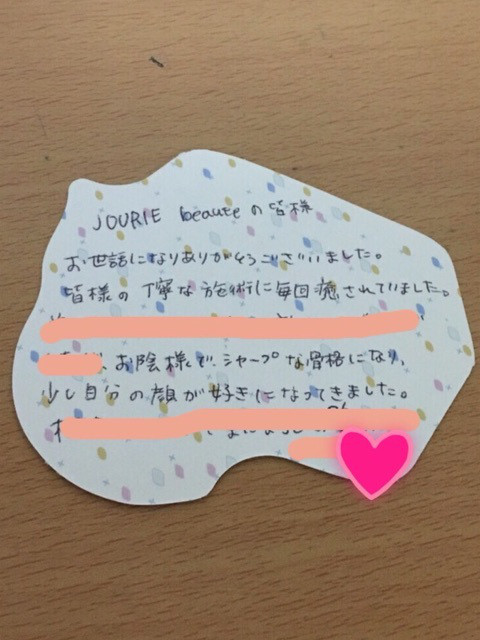 JOURIE beauteの皆様
お世話になりありがとうございました。
皆様の丁寧な施術に毎回癒されていました。
お陰様でシャープな骨格になり、
少し自分の顔が好きになってきました。